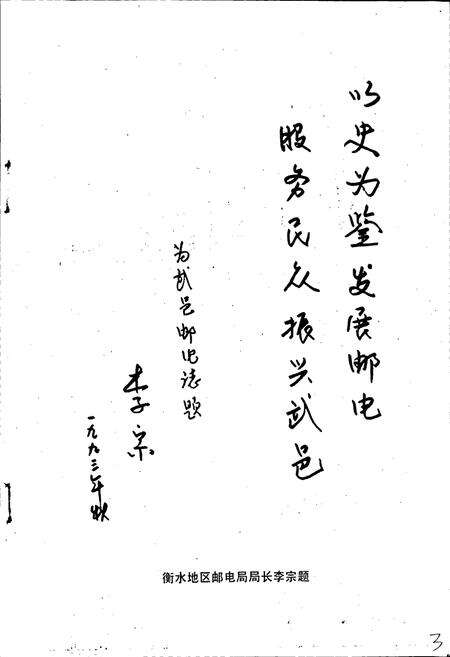 以史为鉴发展邮电
服务民众振兴武邑
为武邑邮电志题
李宗
一九九三年秋
衡水地区邮电局局长李宗题
3